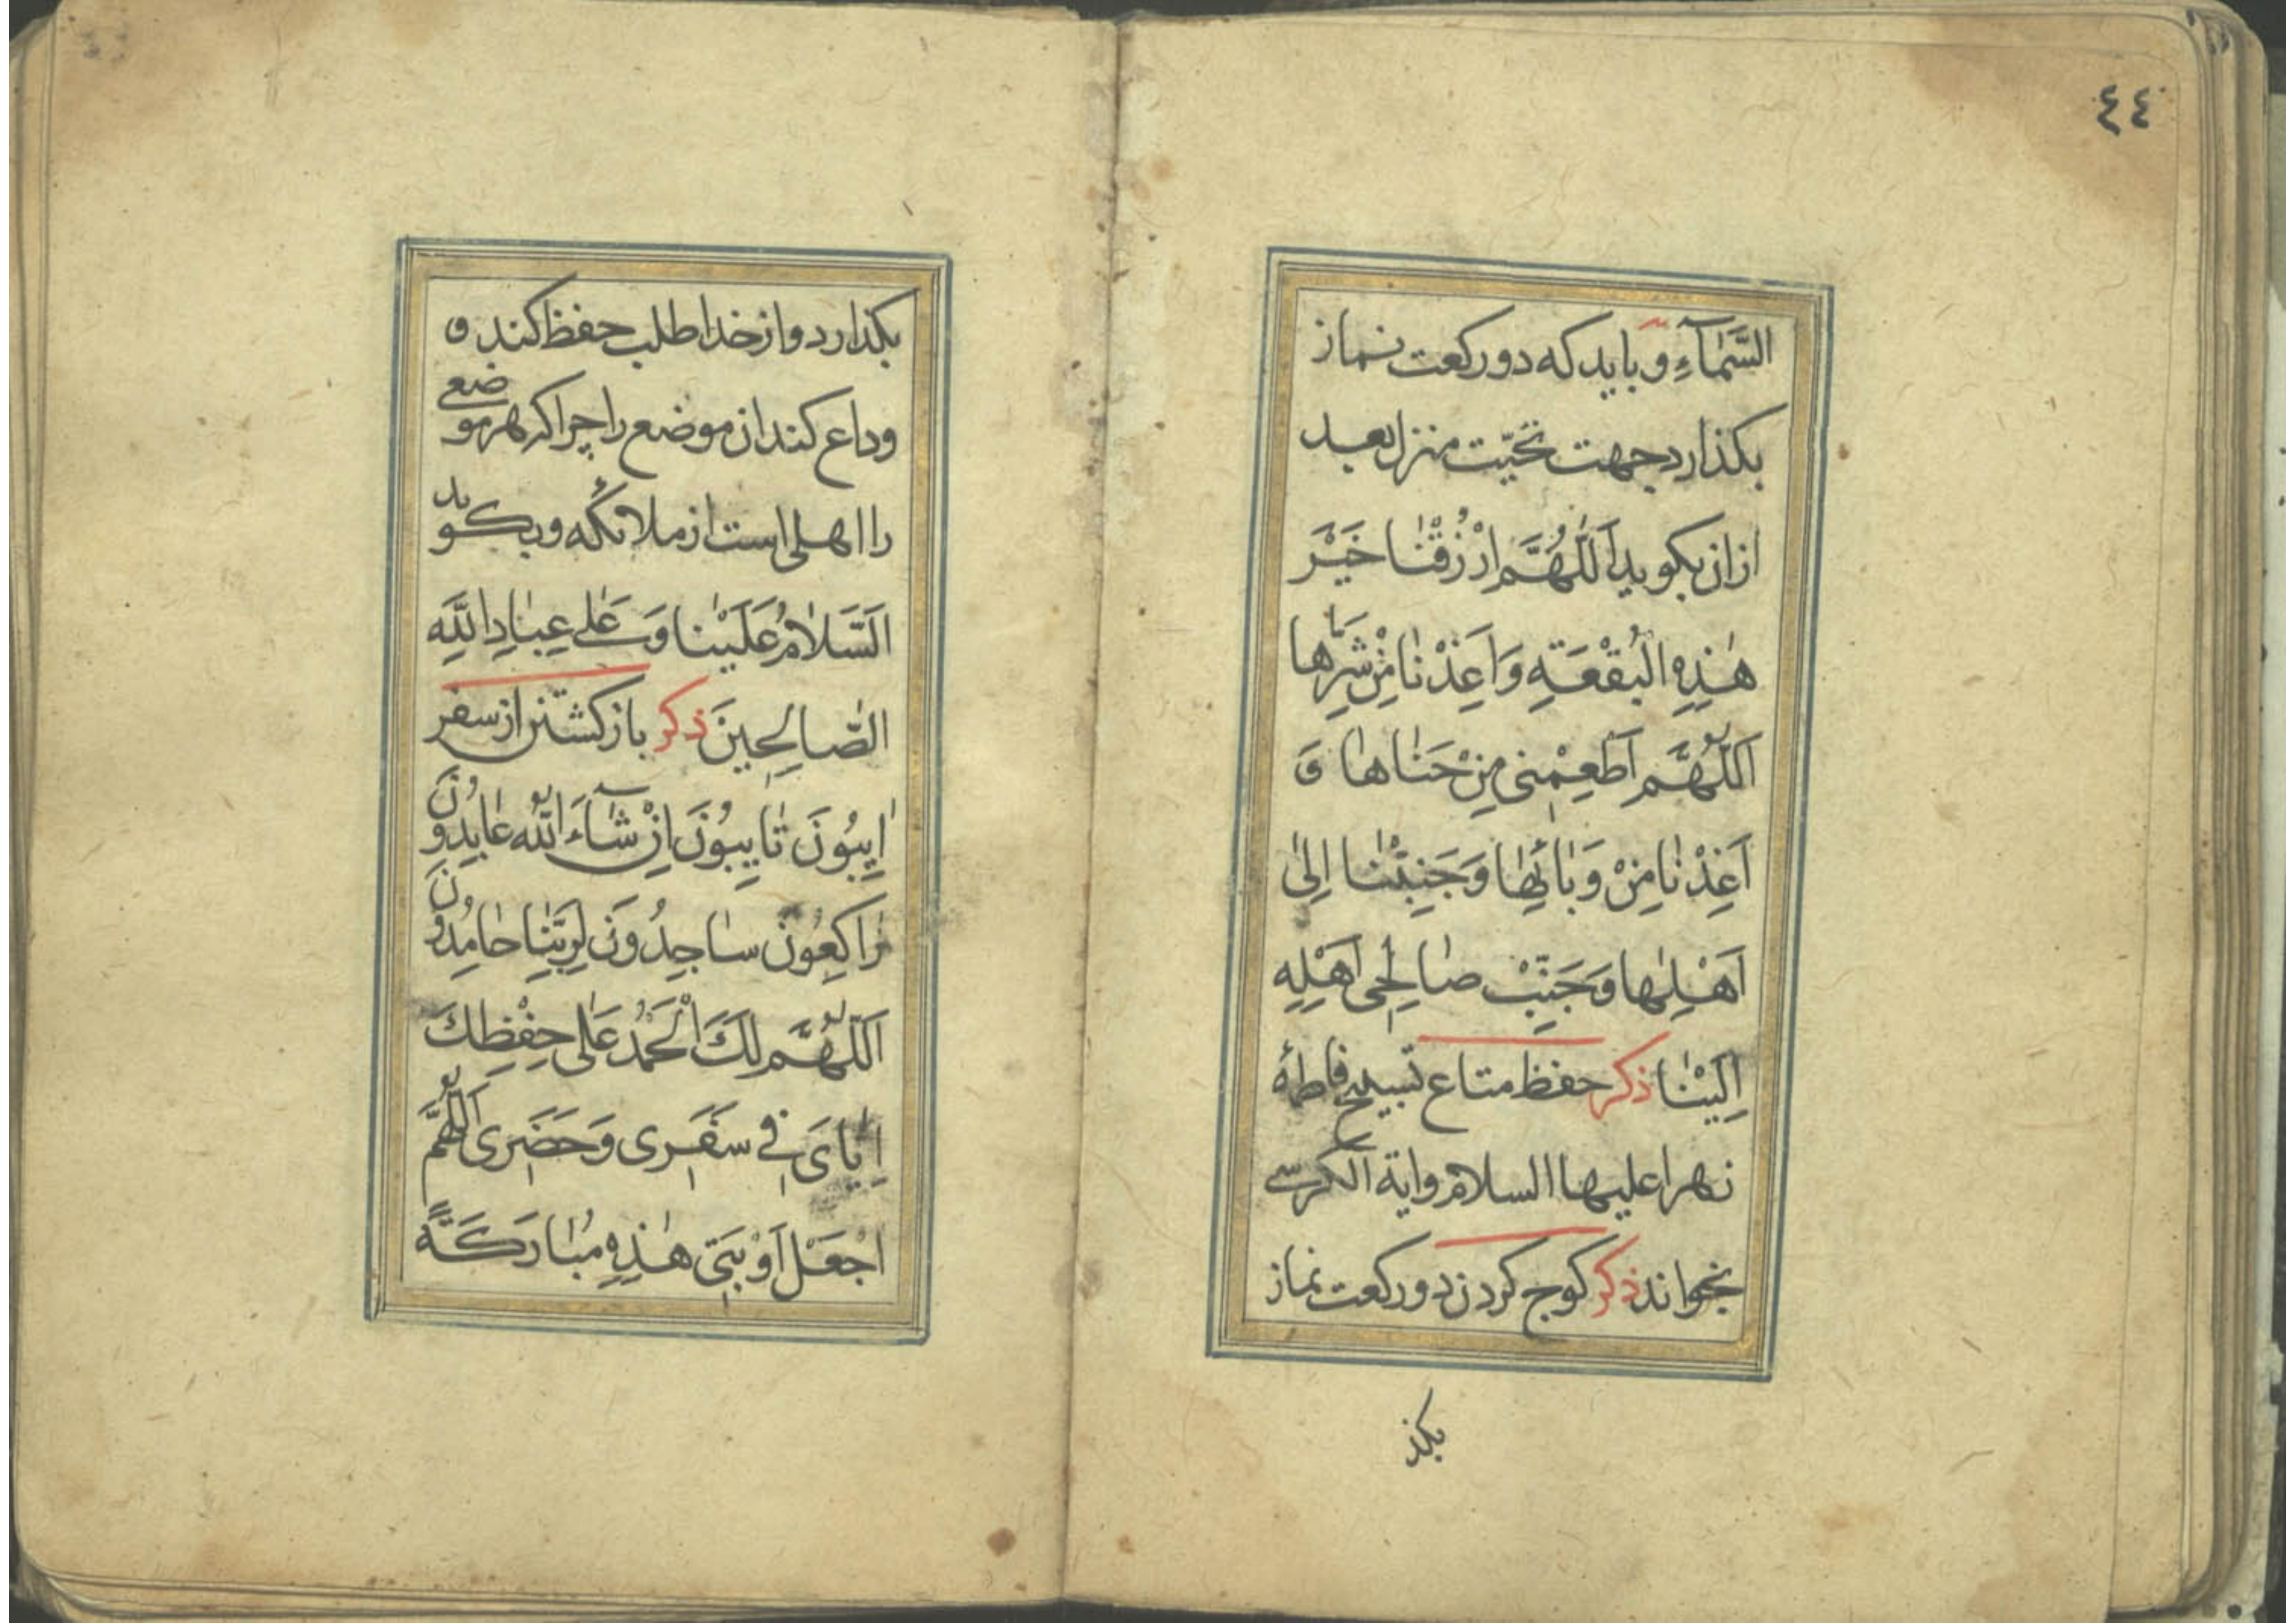 ٤٤
السَّمٰآءِ و بايد كه دو ركعت نماز
بكذارد جهت تحيّت منزل بعد
ازان بكويد اَللّٰهُمَّ ارْزُقْنٰا خَيْرَ
هٰذِهِ الْبُقْعَةِ وَاَعِذْنٰا مِنْ شَرِّهٰا
اَللّٰهُمَّ اَطْعِمْنى مِنْ جَنٰاهٰا وَ
اَعِذْنٰا مِنْ وَبٰائِهٰا وَجَنِبَّنٰا اِلىٰ
اَهْلِهٰا وَجَنِّبْ صٰالِحى اَهْلِهِ
اِلَيْنٰا ذكر حفظ متاع تسبيح فاطمهٔ
زهرا عليها السلام واية الكرسى
بخواند ذكر كوچ كردن دو ركعت نماز
بكذ
بكذارد و از خدا طلب حفظ كند و
وداع كند ان موضع را چرا كه هر موضعى
را اهلى است از ملائكه و بكويد
اَلسَّلٰامُ عَلَيْنٰا وَ عَلٰى عِبٰادِ اللّٰهِ
الصّٰالِحِينَ ذكر باز كشتن از سفر
اٰيِبُونَ تٰايِبُونَ اِنْ شٰآءَ اللّٰه عٰابِدُونَ
رٰاكِعُونَ سٰاجِدُونَ لِرَبِّنٰا حٰامِدُونَ
اَللّٰهُمَّ لَكَ الْحَمْدُ عَلٰى حِفْظِكَ
اِيّٰاىَ فِى سَفَرى وَحَضَرى اَللّٰهُمَّ
اجْعَلْ اَوْبَتى هٰذِهِ مُبٰارَكَةً